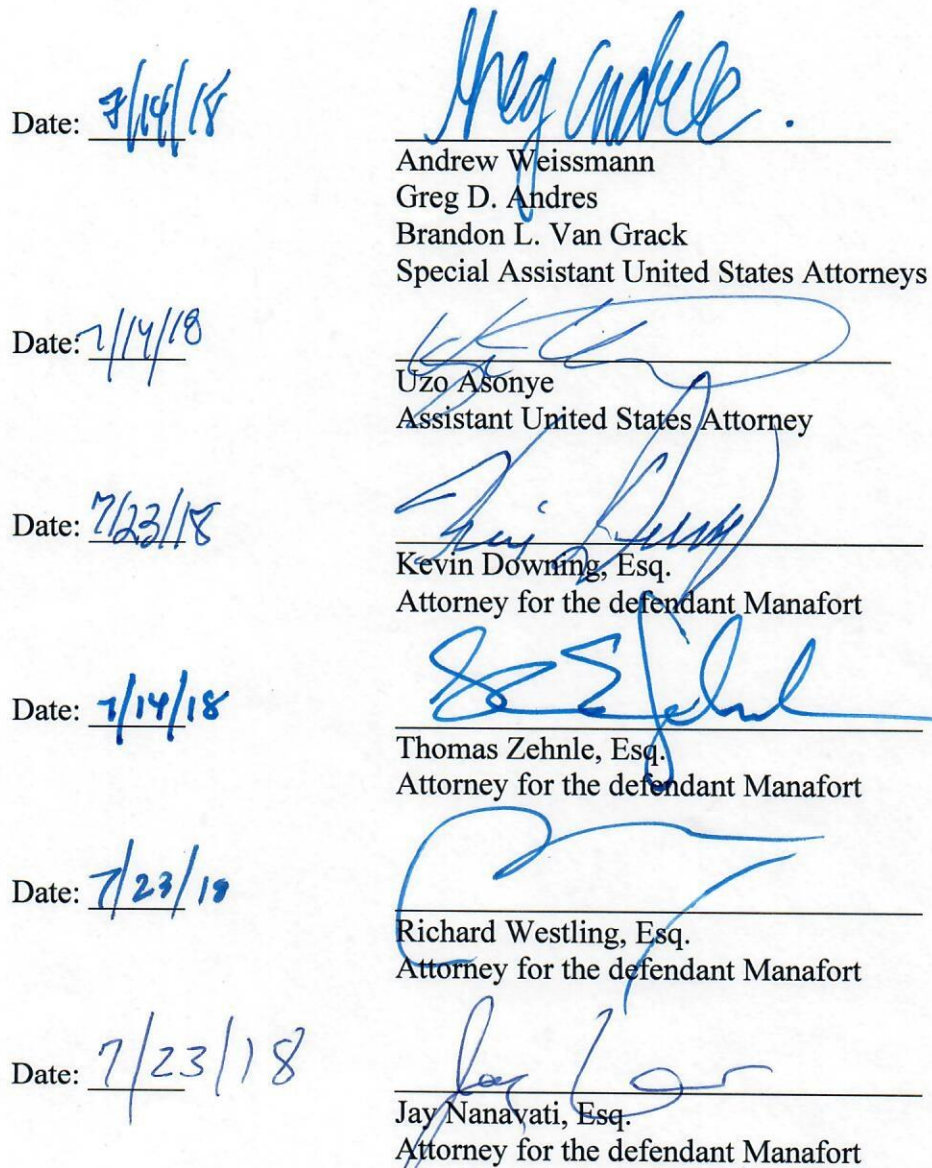 Date: 7/14/18
Greg Andres.
Andrew Weissmann
Greg D. Andres
Brandon L. Van Grack
Special Assistant United States Attorneys
Date: 7/14/18
Uzo Asonye
Assistant United States Attorney
Date: 7/23/18
Kevin Downing, Esq.
Attorney for the defendant Manafort
Date: 7/14/18
Thomas Zehnle, Esq.
Attorney for the defendant Manafort
Date: 7/23/18
Richard Westling, Esq.
Attorney for the defendant Manafort
Date: 7/23/18
Jay Nanavati, Esq.
Attorney for the defendant Manafort